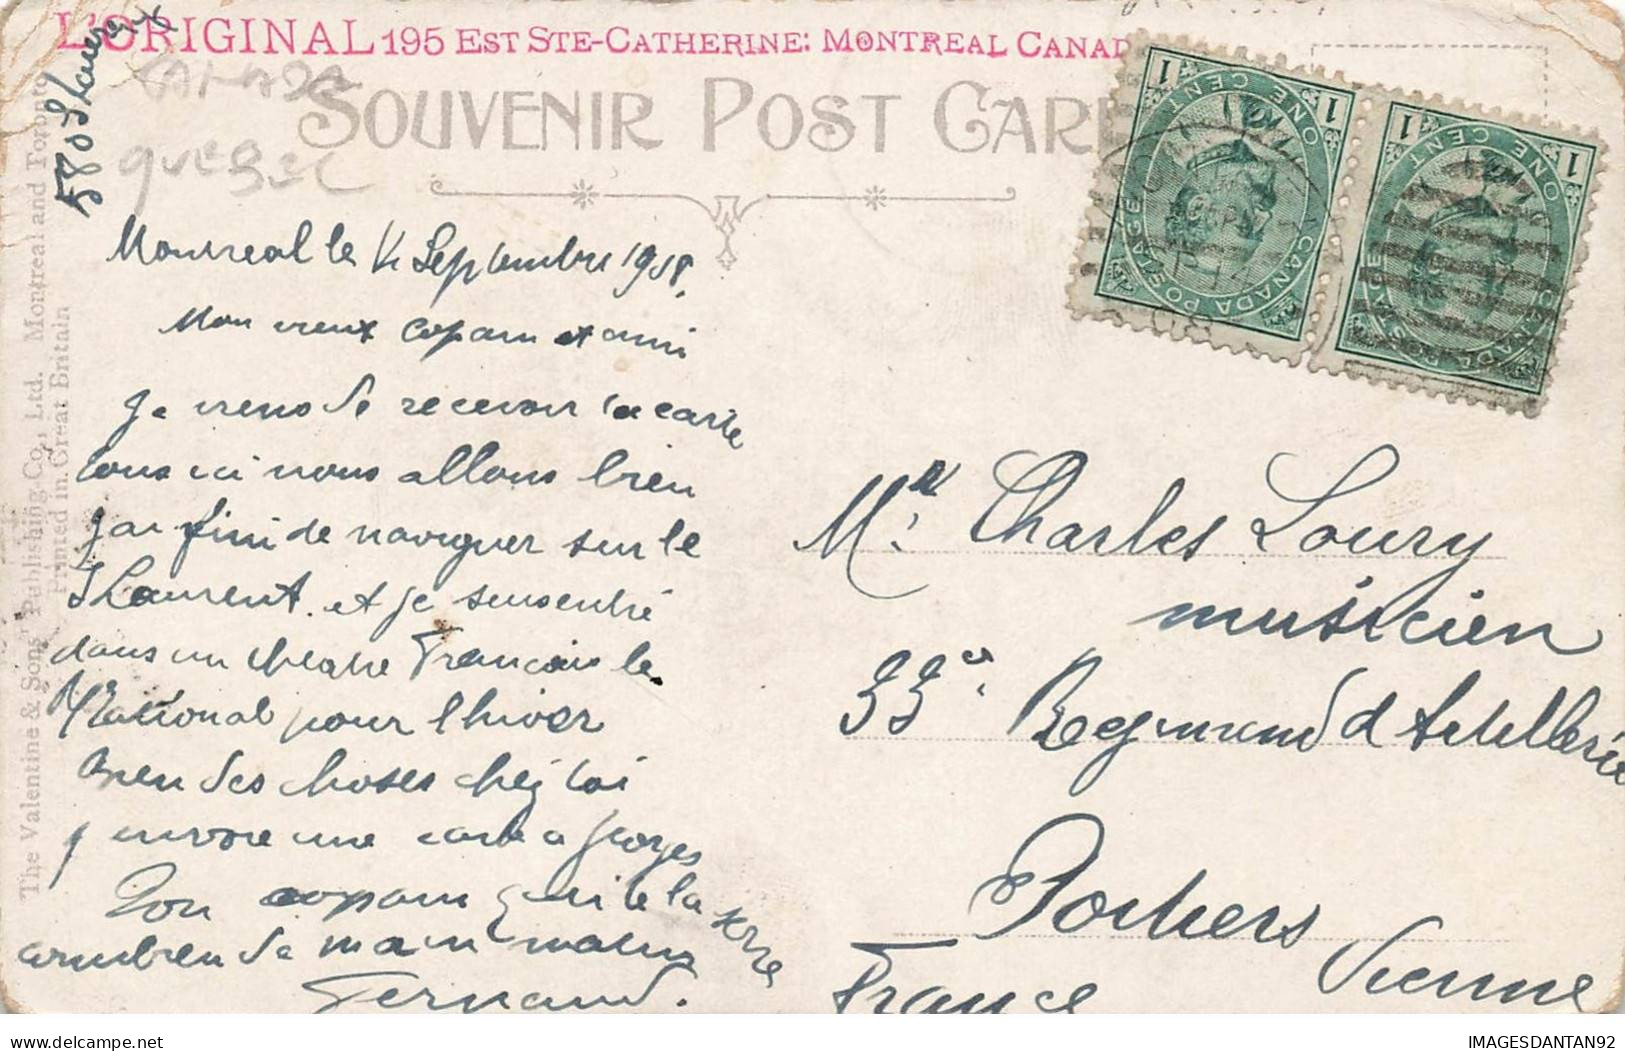 L'ORIGINAL 195 EST STE-CATHERINE: MONTREAL CANAD
SOUVENIR POST CARD
CANADA
QUEBEC
580 St Laurent
The Valentine & Sons' Publishing Co., Ltd. Montreal and Toronto
Printed in Great Britain
Montreal le Septembre 1908
Mon vieux copain et ami
Je viens de recevoir ta carte
tous ici nous allons bien
j'ai fini de naviguer sur le
St Laurent et je suis entré
dans un theatre Francais le
National pour l'hiver
Bien des choses chez toi
j envoie une carte a Georges
Ton copain qui te la serre
combien de main
Fernand.
Mr Charles Loury
musicien
33e Regiment d Artillerie
Poitiers
Vienne
France
CANADA POSTAGE
ONE CENT
1 1
CANADA POSTAGE
ONE CENT
1 1
IMAGESDANTAN92